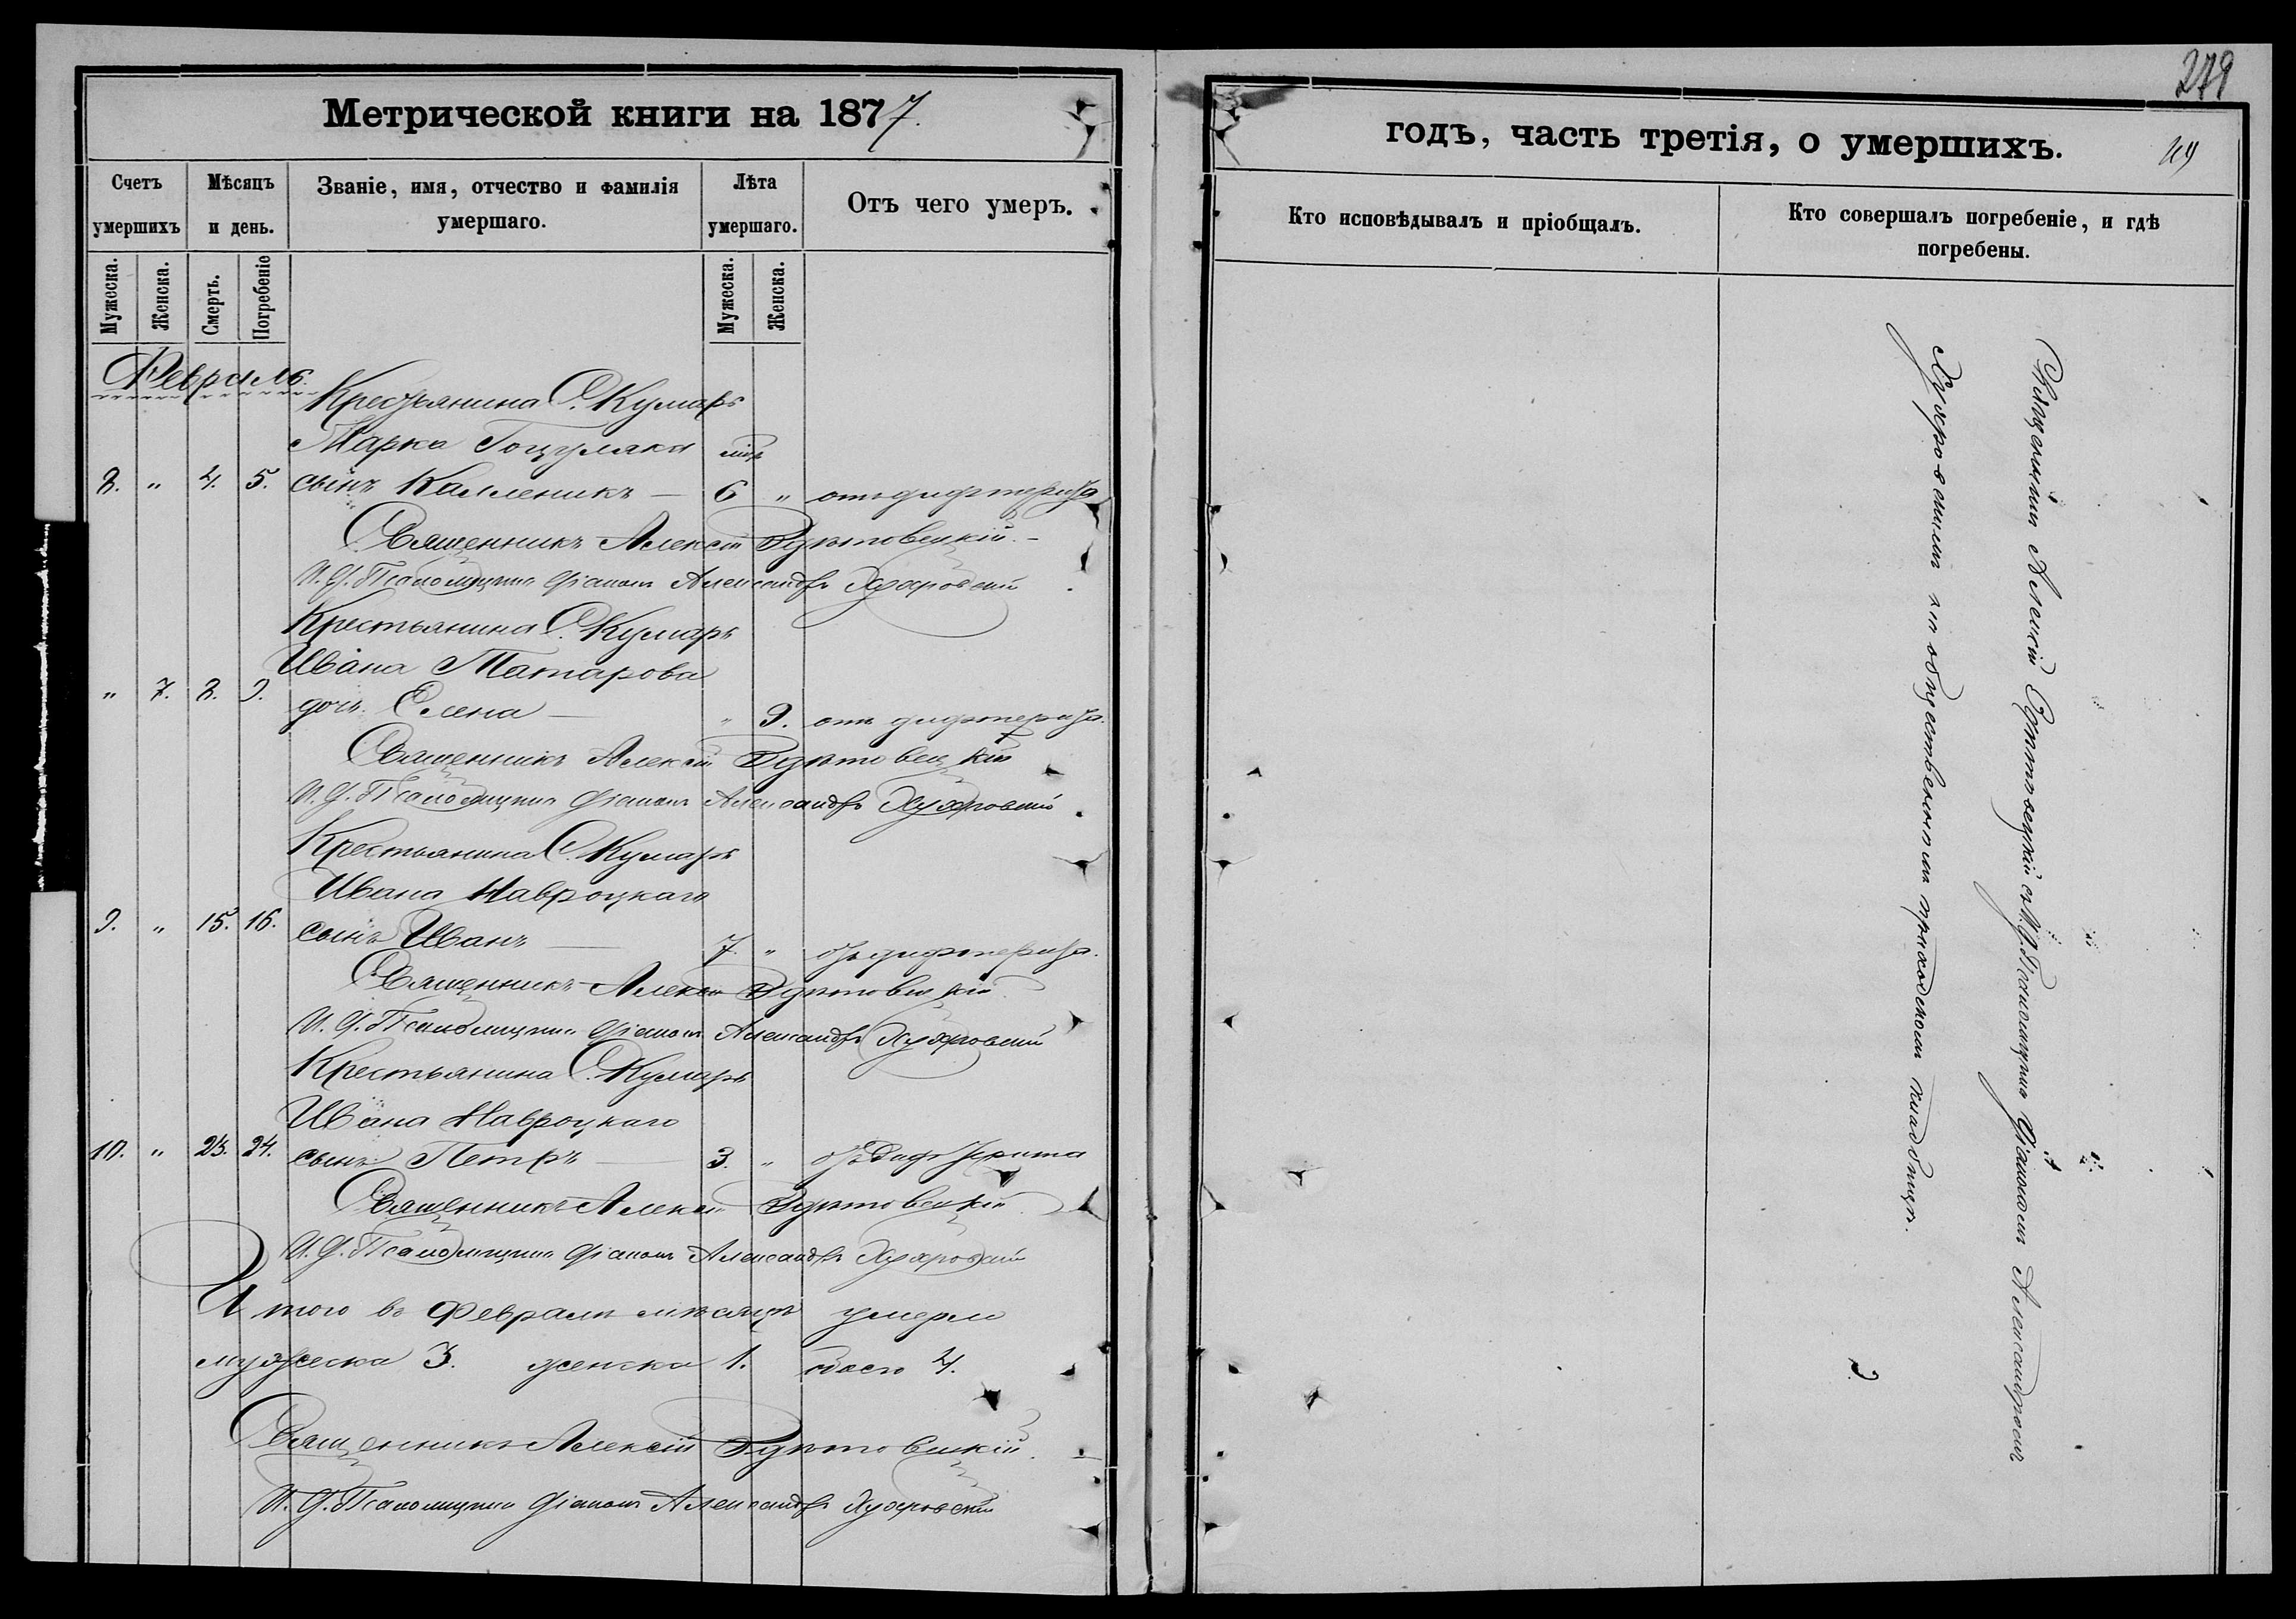 Метрической книги на 1877.
Счетъ умершихъ
Мѣсяцъ и день.
Званіе, имя, отчество и фамилія умершаго.
Лѣта умершаго.
Отъ чего умеръ.
Мужеска. Женска. Смерть. Погребеніе Мужеска. Женска.
Февраль.
Крестьянина С. Кумаръ
Марка Гоцуляка
8. " 4. 5. сынъ Калленикъ — 6 " отъ дифтерита
Священникъ Алексій
И. Д. Псаломщика Діаконъ Александръ
Крестьянина С. Кумаръ
Ивана Татарова
" 7. 8. 9. дочь Елена — " 9. отъ дифтерита.
Священникъ Алексій
И. Д. Псаломщика Діаконъ Александръ
Крестьянина С. Кумаръ
Ивана Навроцкаго
9. " 15. 16. сынъ Иванъ — 7. " отъ дифтерита.
Священникъ Алексій
И. Д. Псаломщика Діаконъ Александръ
Крестьянина С. Кумаръ
Ивана Навроцкаго
10. " 23. 24. сынъ Петръ — 3. " отъ дифтерита
Священникъ Алексій
И. Д. Псаломщика Діаконъ Александръ
Итого въ Февралѣ мѣсяцѣ умерло
мужеска 3. женска 1. всего 4.
Священникъ Алексій
И. Д. Псаломщика Діаконъ Александръ
279
годъ, часть третія, о умершихъ.
Кто исповѣдывалъ и пріобщалъ.
Кто совершалъ погребеніе, и гдѣ погребены.
Священникъ Алексій съ И. Д. Псаломщика Діакономъ Александромъ
на общественномъ приходскомъ кладбищѣ.